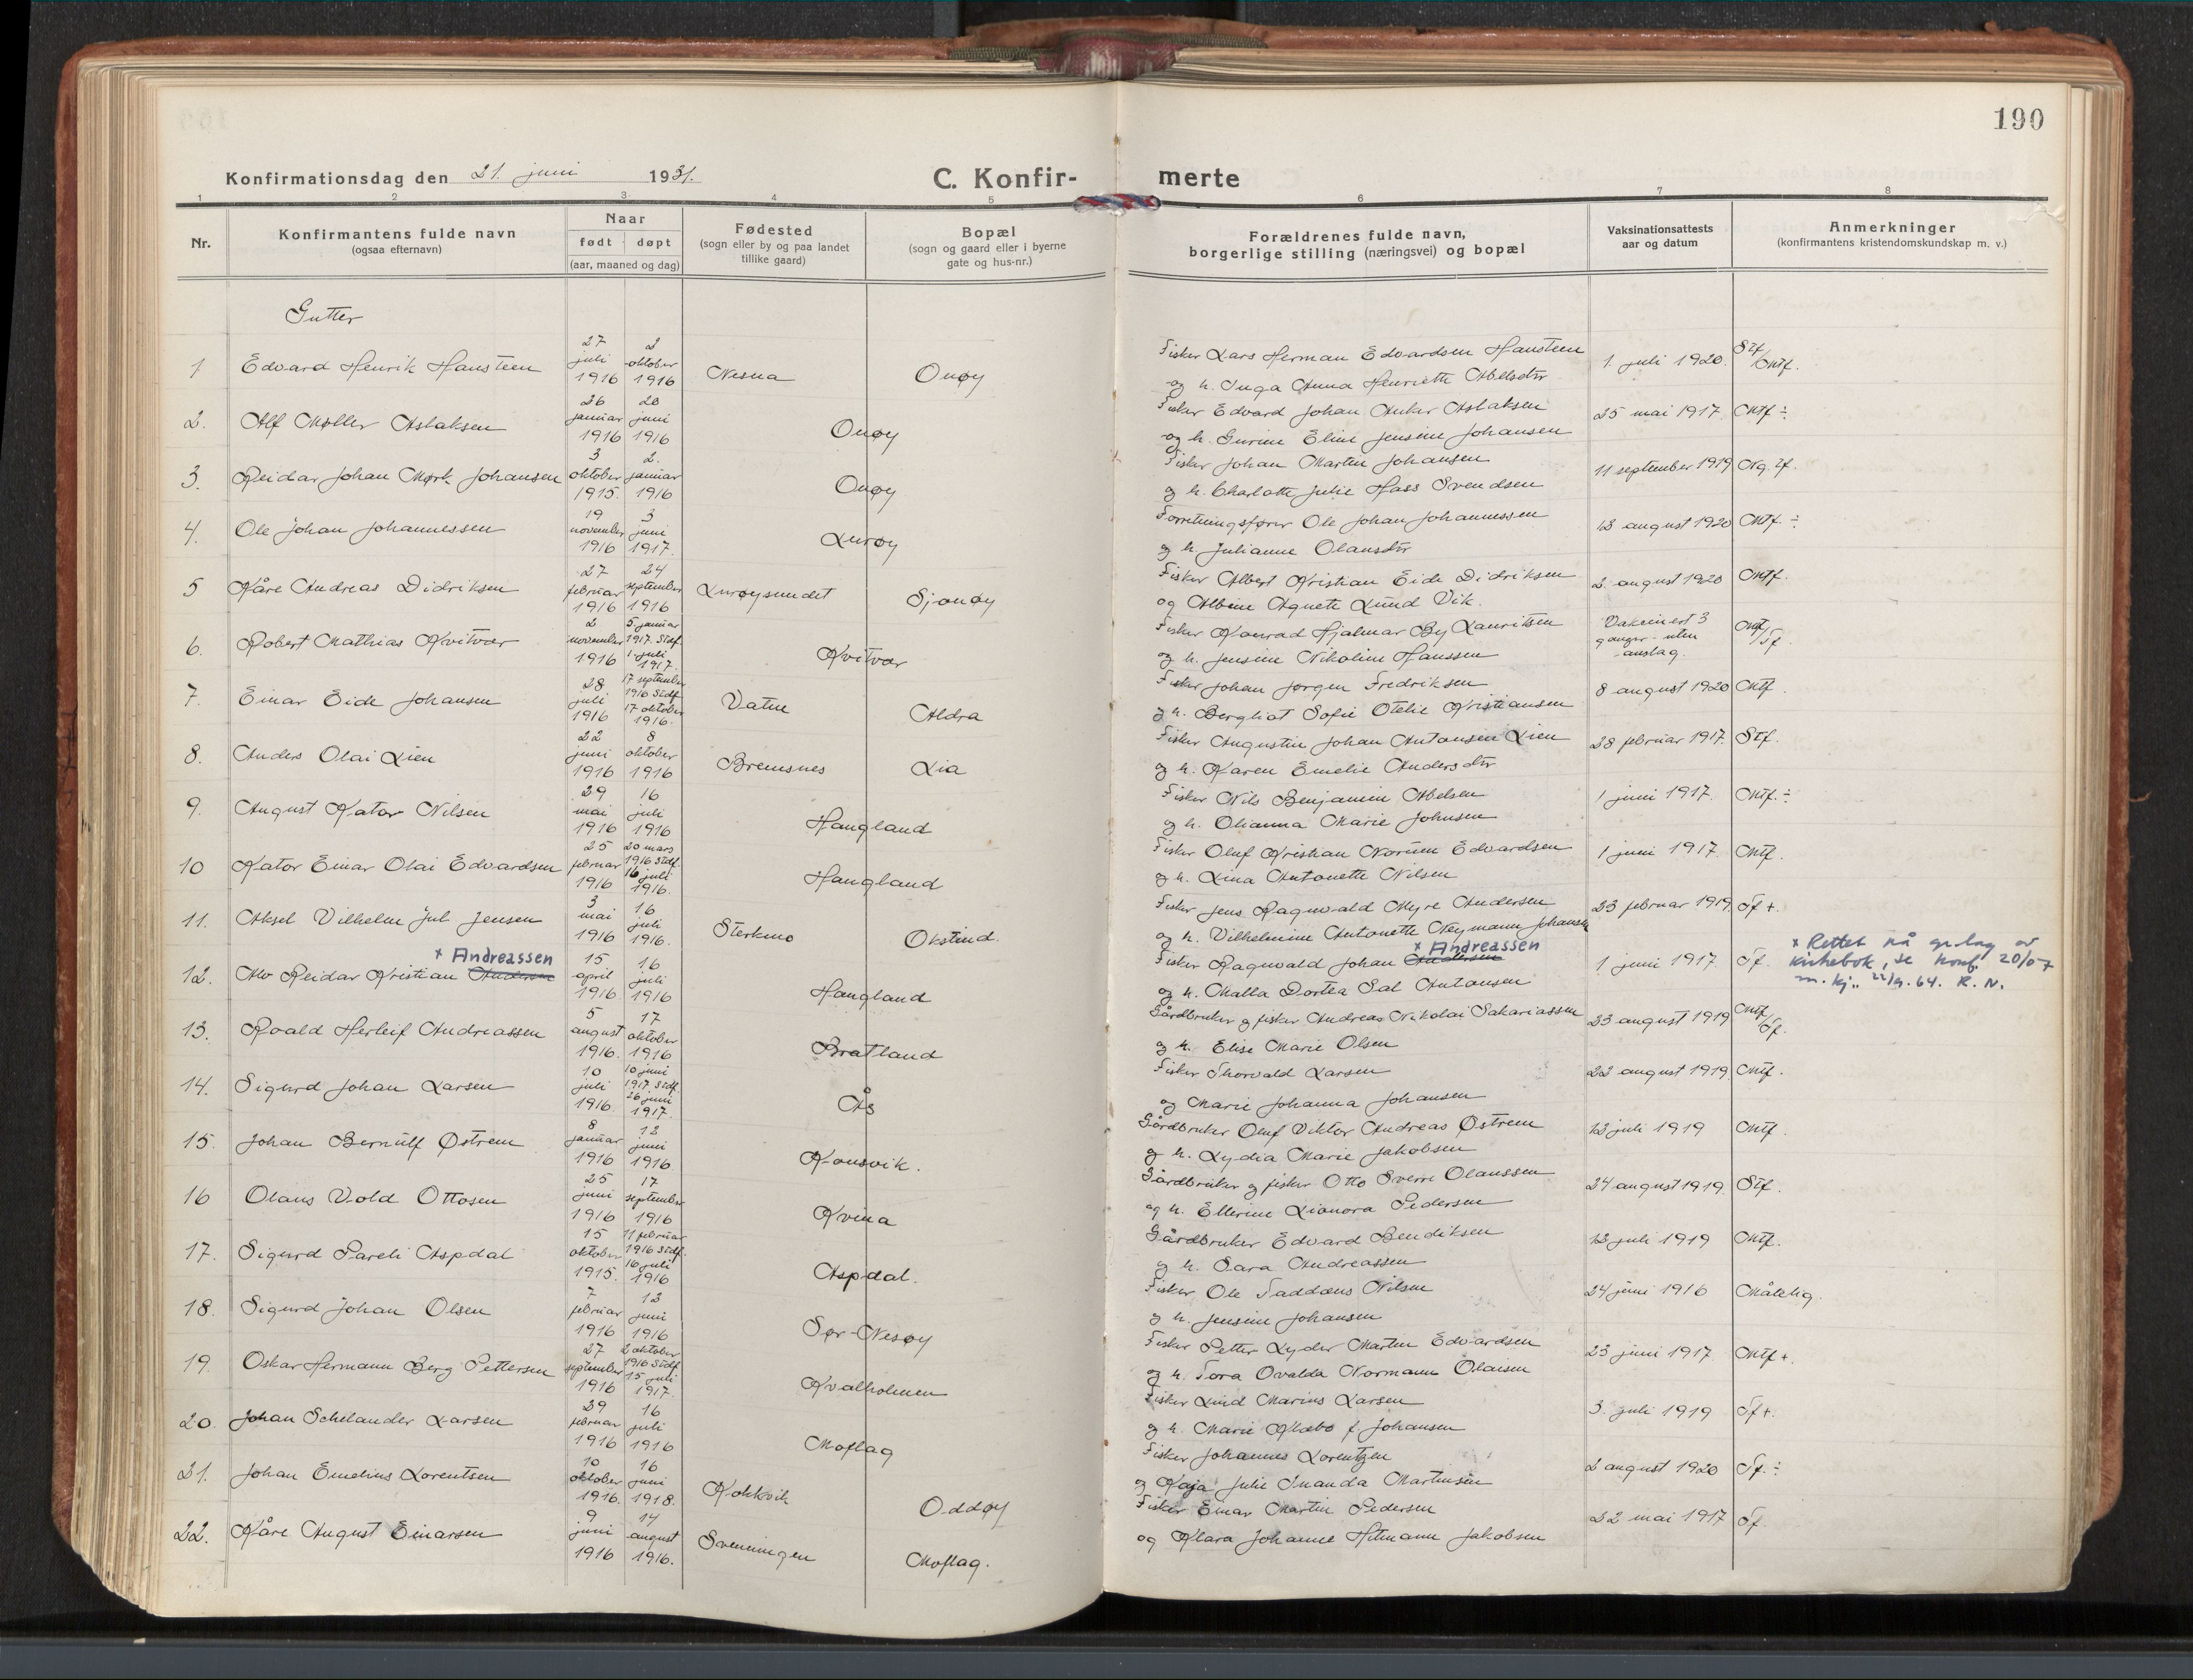 190
Konfirmationsdag den 21. juni 1931.
C. Konfir- merte
1 2 3 4 5 6 7 8
Nr.
Konfirmantens fulde navn
(ogsaa efternavn)
Naar
født døpt
(aar, maaned og dag)
Fødested
(sogn eller by og paa landet
tillike gaard)
Bopæl
(sogn og gaard eller i byerne
gate og hus-nr.)
Forældrenes fulde navn,
borgerlige stilling (næringsvei) og bopæl
Vaksinationsattests
aar og datum
Anmerkninger
(konfirmantens kristendomskundskap m. v.)
Gutter
1 Edvard Henrik Hansteen 27 juli 1916 2 oktober 1916 Nesna Onøy
Fisker Lars Herman Edvardsen Hansteen
og h. Inga Anna Henriette Abelsdtr
1. juli 1920. Stf/Mtf.
2. Alf Møller Aslaksen 26 januar 1916 20 juni 1916 Onøy
Fisker Edvard Johan Anker Aslaksen
og h. Gurine Eline Jensine Johansen
25 mai 1917 Mtf ÷
3. Reidar Johan Mørk Johansen 3 oktober 1915. 2. januar 1916 Onøy
Fisker Johan Martin Johansen
og h. Charlotte Julie Hass Svendsen
11 september 1919 Ng. tf.
4. Ole Johan Johannessen 19 november 1916 3 juni 1917. Lurøy
Forretningsfører Ole Johan Johannessen
og h. Julianne Olausdtr
13 august 1920 Mtf ÷
5 Kåre Andreas Didriksen 27 februar 1916 24 september 1916 Lurøysundet Sjonøy
Fisker Albert Kristian Eide Didriksen
og Albine Agnete Lund Vik.
2. august 1920 Mtf.
6. Robert Mathias Kvitvær 2 november 1916 5 januar 1917. Stdf. 1 juli 1917. Kvitvær
Fisker Konrad Hjalmar By Lauritsen
og h. Jensine Nikoline Hanssen
Vaksinert 3
ganger - uten
anslag.
Mtf/Tf
7. Einar Eide Johansen 28 juli 1916 17 september 1916 Stdf. 17 oktober 1916. Vatne Aldra
Fisker Johan Jørgen Fredriksen
og h. Bergliot Sofie Otelie Kristiansen
8 august 1920 Mtf.
8. Anders Olai Lien 22 juni 1916 8 oktober 1916 Bremsnes Lia
Fisker Augustin Johan Antonsen Lien
og h. Karen Emelie Andersdtr
28 februar 1917. Stf.
9. August Kator Nilsen 29 mai 1916 16 juli 1916 Haugland
Fisker Nils Benjamin Abelsen
og h. Olianna Marie Johnsen
1 juni 1917. Mtf. ÷
10 Kator Einar Olai Edvardsen 25 februar 1916 20 mars 1916 Stdf. 16 juli 1916. Haugland
Fisker Oluf Kristian Norum Edvardsen
og h. Lina Antonette Nilsen
1 juni 1917. Mtf.
11. Aksel Vilhelm Jul Jensen 3 mai 1916 16 juli 1916. Sterkmo Okstind.
Fisker Jens Ragnvald Myre Andersen
og h. Vilhelmine Antonette Neymann Johansen
23 februar 1919. Tf +.
12. Alv Reidar Kristian Andersen x Andreassen 15 april 1916 16 juli 1916 Haugland
Fisker Ragnvald Johan Andersen x Andreassen
og h. Malla Dortea Sal Antonsen
1 juni 1917 Tf.
x Rettet på gr.lag av
kirkebok, se konf. 20/07
m. kj.. 22/9. 64. R. N.
13. Roald Herleif Andreassen 5 august 1916. 17 oktober 1916 Bratland
Gårdbruker og fisker Andreas Nikolai Sakariassen
og h. Elise Marie Olsen
23 august 1919 Mtf/Tf.
14. Sigurd Johan Larsen 10 juli 1916. 10 juni 1917. Stdf. 26 juni 1917. Ås
Fisker Thorvald Larsen
og Marie Johanna Johansen
22 august 1919 Mtf.
15. Johan Bernulf Østrem 8 januar 1916 12 juni 1916. Konsvik.
Gårdbruker Oluf Viktor Andreas Østrem
og h. Lydia Marie Jakobsen
12 juli 1919 Mtf.
16 Olaus Vold Ottosen 25 juni 1916 17 september 1916 Kvina
Gårdbruker og fisker Otto Sverre Olaussen
og h. Ellerine Lionora Pedersen
24 august 1919. Stf.
17. Sigurd Pareli Aspdal 15 oktober 1915. 11 februar 1916 Stdf. 16 juli 1916 Aspdal.
Gårdbruker Edvard Bendiksen
og h. Sara Andreassen
12 juli 1919 Mtf.
18. Sigurd Johan Olsen 7 februar 1916 12 juni 1916 Sør-Nesøy
Fisker Ole Taddæus Nilsen
og h. Jensine Johansen
24 juni 1916 Måtelig.
19. Oskar Hermann Berg Pettersen 27 september 1916 2 oktober 1916 Stdf. 15 juli 1917. Kvalholmen
Fisker Petter Lyder Martin Edvardsen
og h. Tora Ovalda Normann Olaisen
23 juni 1917 Mtf +.
20. Johan Schelander Larsen 29 februar 1916 16 juli 1916 Moflag
Fisker Lind Marius Larsen
og h. Marie Klæbo f Johansen
3. juli 1919 Tf +.
21. Johan Emelius Lorentsen 10 oktober 1916. 16 juni 1918. Kokkvik Oddøy
Fisker Johannes Lorentzen
og Kaja Julie Inanda Martinsen
2 august 1920 Tf. ÷
22. Kåre August Einarsen 9 juni 1916 14 august 1916. Svenningen Moflag.
Fisker Einar Martin Pedersen
og Klara Johanne Hitmann Jakobsen
22 mai 1917 Tf.